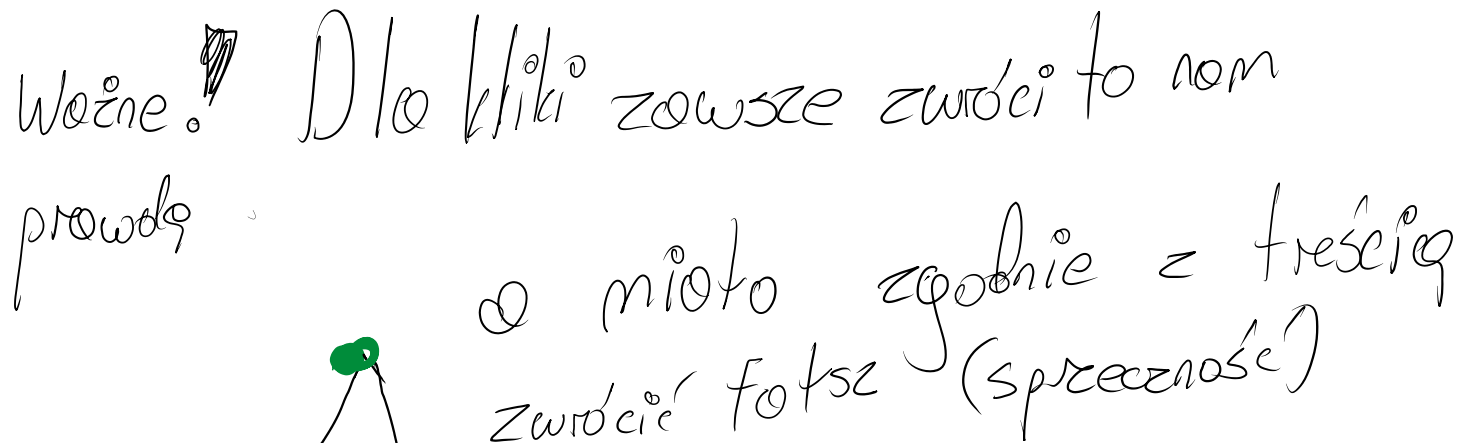 Ważne! Dla kliki zawsze zwróci to nam
prawdę
a miało zgodnie z treścią
zwrócić fałsz (sprzeczność)